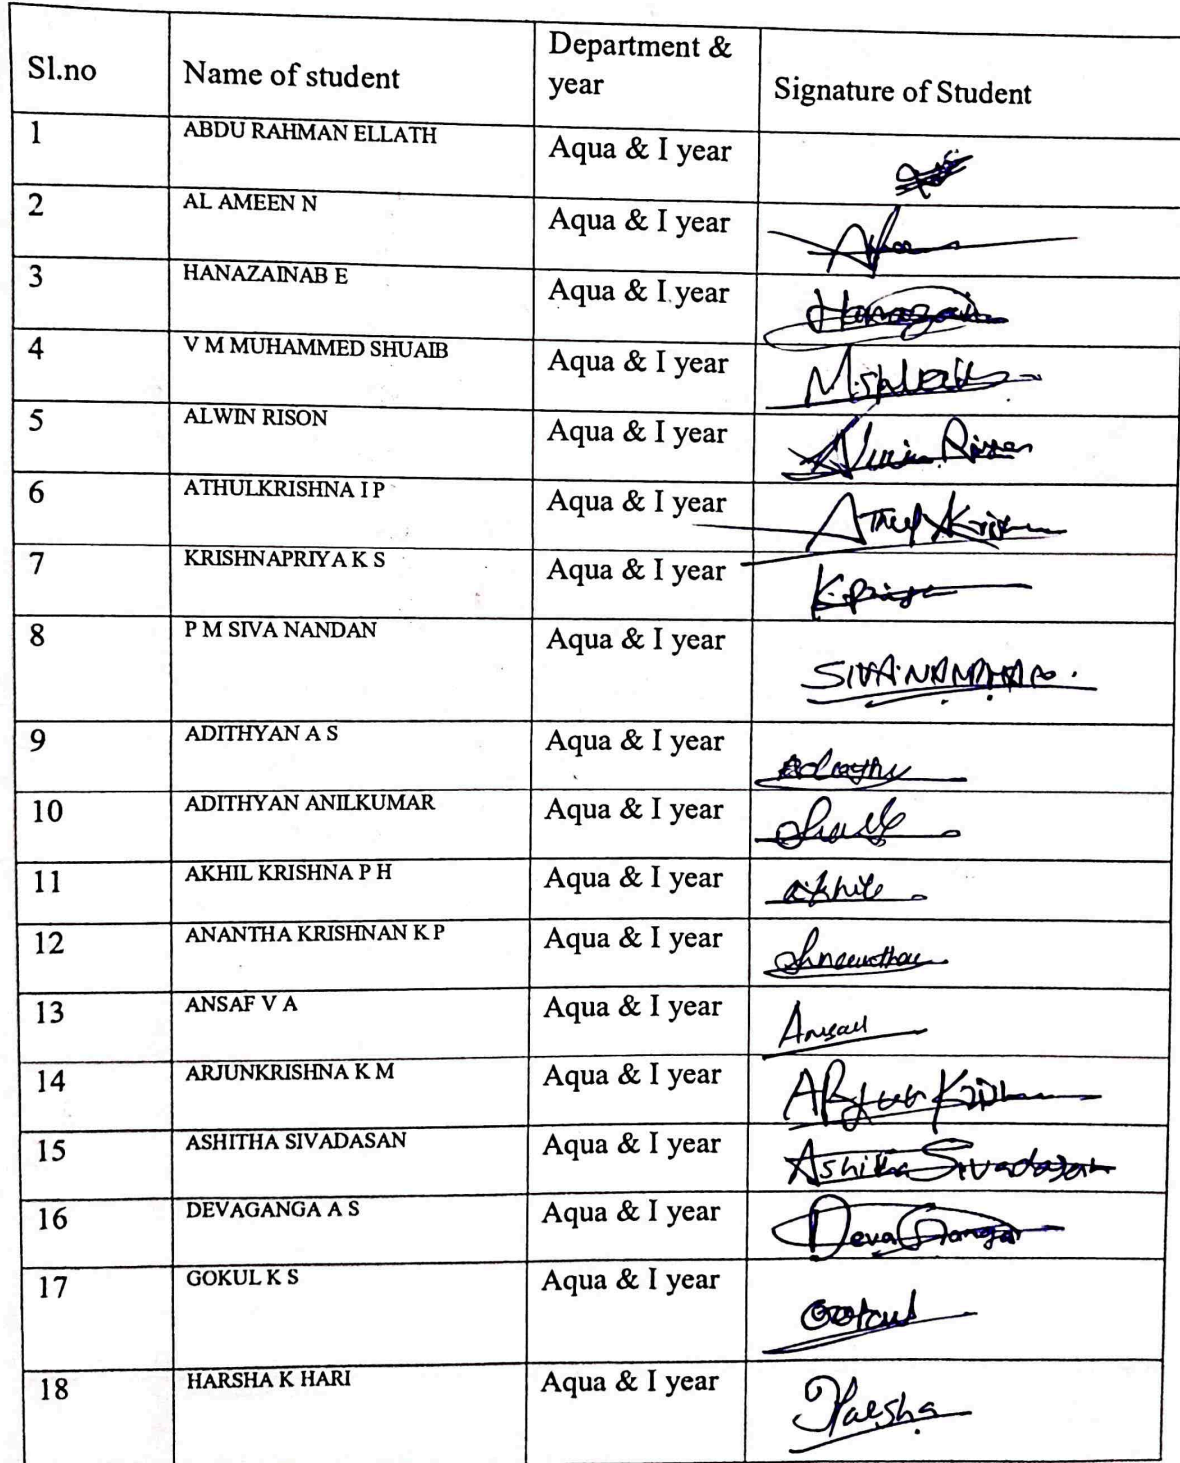 Sl.no Name of student Department & year Signature of Student
1 ABDU RAHMAN ELLATH Aqua & I year
2 AL AMEEN N Aqua & I year
3 HANAZAINAB E Aqua & I year Hanazain
4 V M MUHAMMED SHUAIB Aqua & I year
5 ALWIN RISON Aqua & I year Alwin Rison
6 ATHULKRISHNA I P Aqua & I year Athul Krishna
7 KRISHNAPRIYA K S Aqua & I year K.Priya
8 P M SIVA NANDAN Aqua & I year SIVA NANDHAN.
9 ADITHYAN A S Aqua & I year
10 ADITHYAN ANILKUMAR Aqua & I year
11 AKHIL KRISHNA P H Aqua & I year akhil
12 ANANTHA KRISHNAN K P Aqua & I year
13 ANSAF V A Aqua & I year
14 ARJUNKRISHNA K M Aqua & I year Arjun Krishna
15 ASHITHA SIVADASAN Aqua & I year Ashitha Sivadasan
16 DEVAGANGA A S Aqua & I year Deva Ganga
17 GOKUL K S Aqua & I year Gokul
18 HARSHA K HARI Aqua & I year Harsha